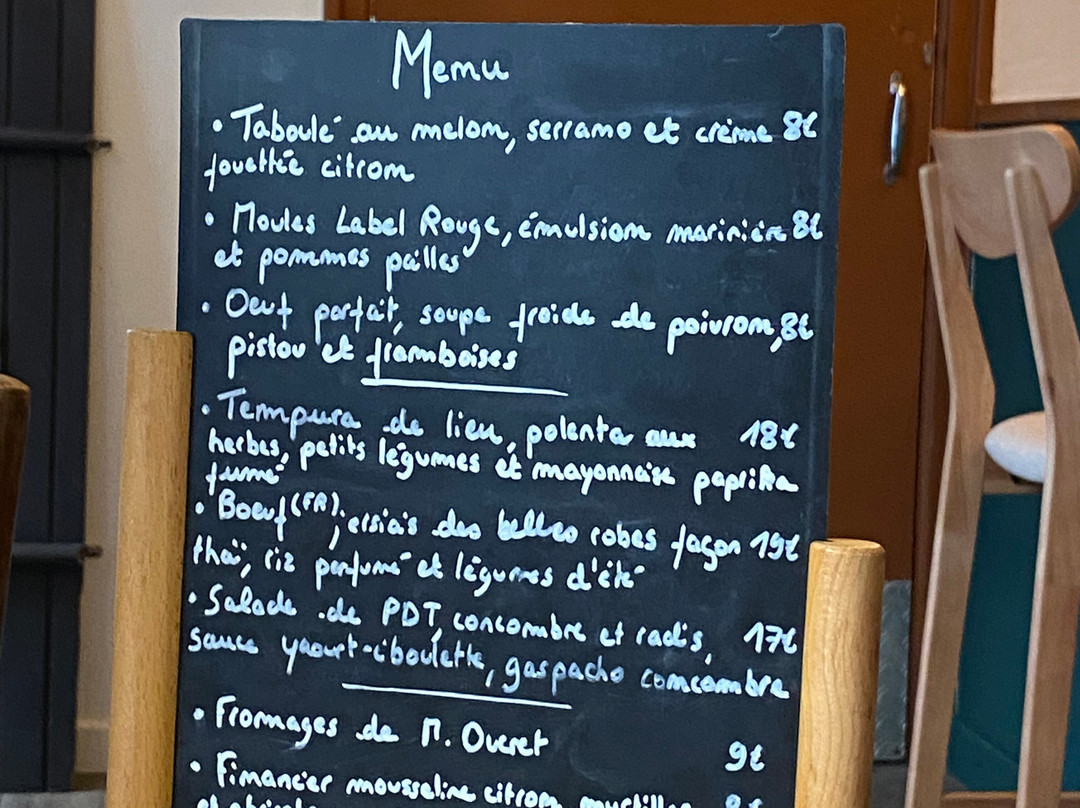 Menu
• Taboulé au melon, serrano et crème 8€
fouettée citron
• Moules Label Rouge, émulsion marinière 8€
et pommes pailles
• Oeuf parfait, soupe froide de poivron, 8€
pistou et framboises
• Tempura de lieu, polenta aux 18€
herbes, petits légumes et mayonnaise paprika
fumé
• Boeuf (FR), des belles robes façon 19€
thaï, riz parfumé et légumes d'été
• Salade de PDT, concombre et radis, 17€
sauce yaourt-ciboulette, gaspacho concombre
• Fromages de M. Ouvret 9€
• Financier mousseline citron, myrtilles 8€